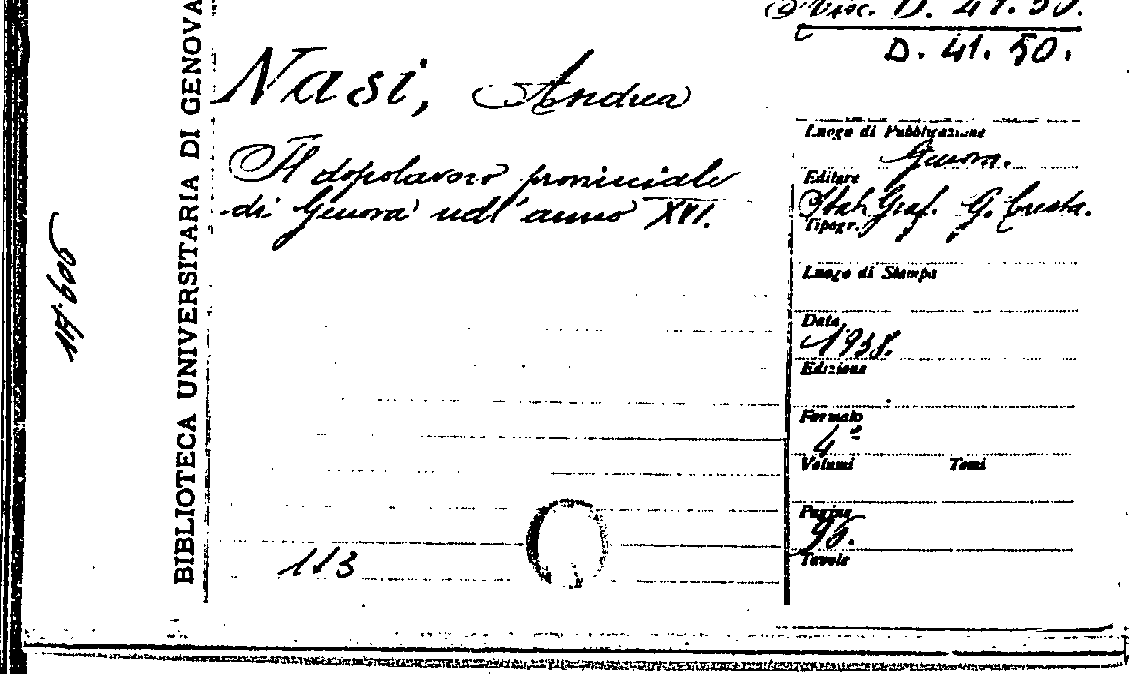 Misc. D. 41. 50.
D. 41. 50.
Nasi, Andrea
Il dopolavoro provinciale
di Genova nell'anno XVI.
BIBLIOTECA UNIVERSITARIA DI GENOVA
Luogo di Pubblicazione
Genova.
Editore
Stab. Graf. G. Cresta.
Tipogr.
Luogo di Stampa
Data
1938.
Edizione
Formato
4º
Volumi Tomi
Pagine
95.
Tavole
113